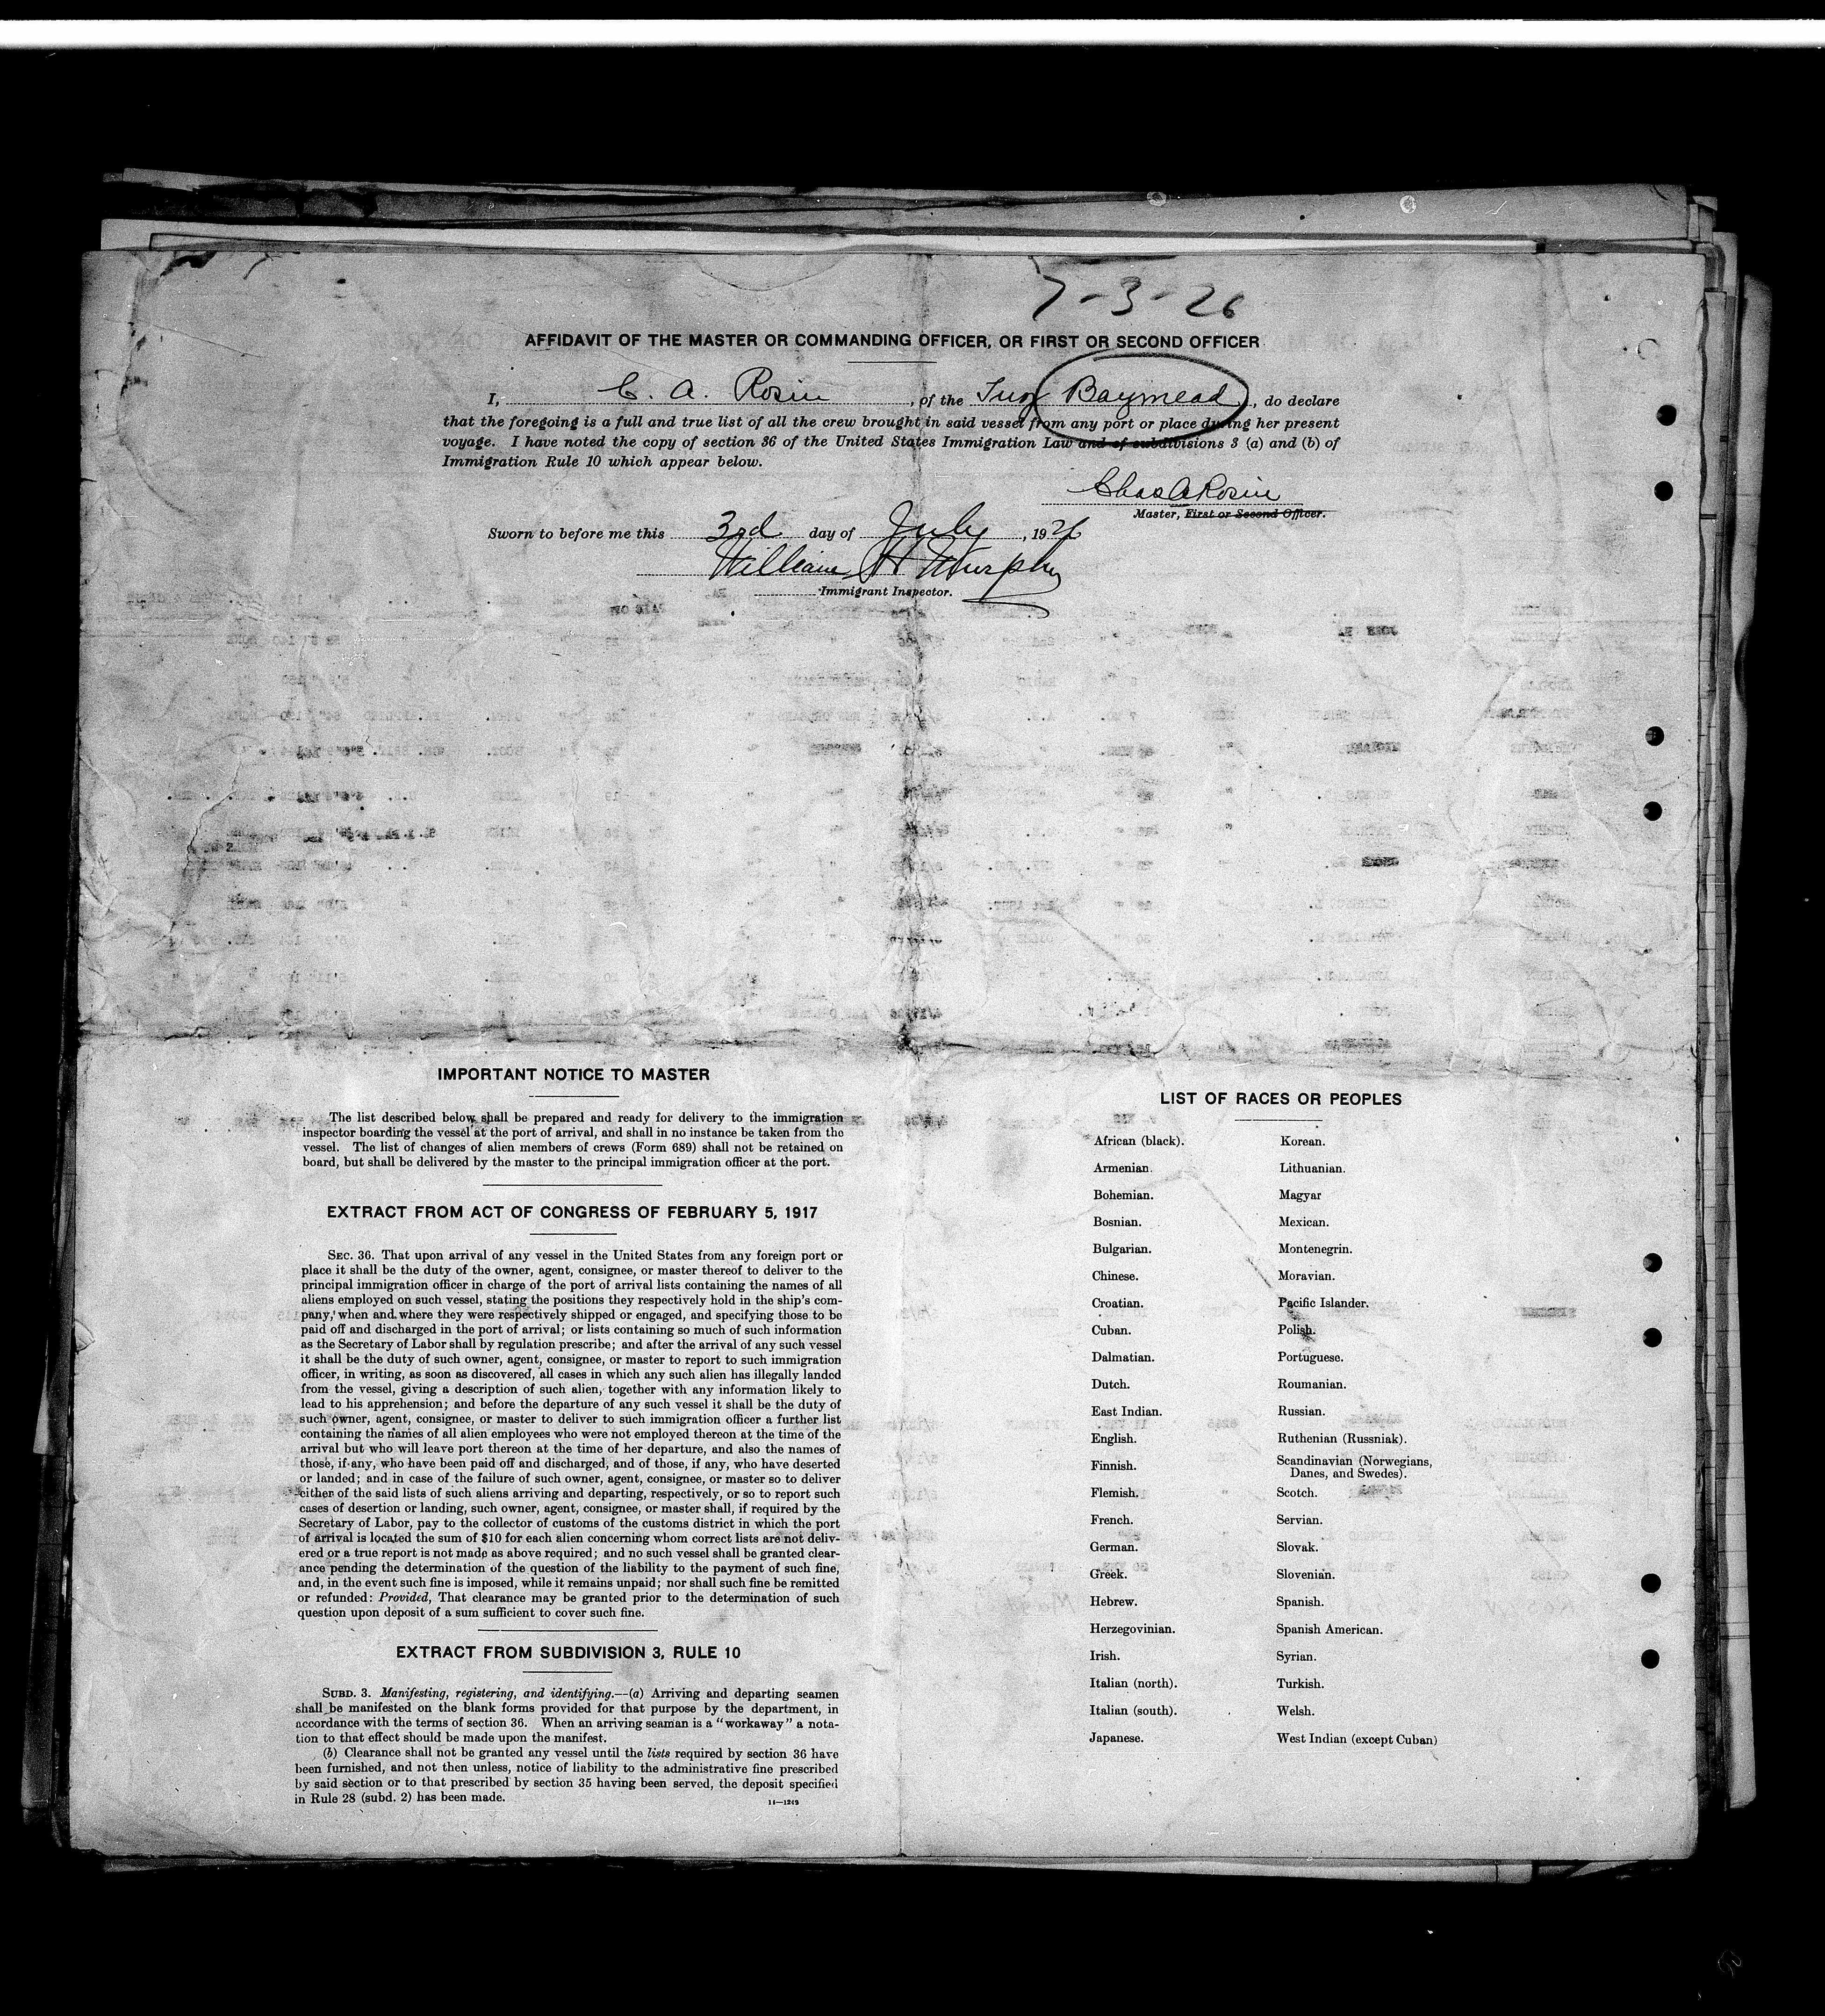 7-3-26
AFFIDAVIT OF THE MASTER OR COMMANDING OFFICER, OR FIRST OR SECOND OFFICER
I, C. A. Rosin, of the Tug Baymead, do declare
that the foregoing is a full and true list of all the crew brought in said vessel from any port or place during her present
voyage. I have noted the copy of section 36 of the United States Immigration Law and of subdivisions 3 (a) and (b) of
Immigration Rule 10 which appear below.
Chas A Rosin
Master, First or Second Officer.
Sworn to before me this 3rd day of July, 1926
William H Murphy
Immigrant Inspector.
IMPORTANT NOTICE TO MASTER
The list described below shall be prepared and ready for delivery to the immigration
inspector boarding the vessel at the port of arrival, and shall in no instance be taken from the
vessel. The list of changes of alien members of crews (Form 689) shall not be retained on
board, but shall be delivered by the master to the principal immigration officer at the port.
EXTRACT FROM ACT OF CONGRESS OF FEBRUARY 5, 1917
SEC. 36. That upon arrival of any vessel in the United States from any foreign port or
place it shall be the duty of the owner, agent, consignee, or master thereof to deliver to the
principal immigration officer in charge of the port of arrival lists containing the names of all
aliens employed on such vessel, stating the positions they respectively hold in the ship's com-
pany, when and where they were respectively shipped or engaged, and specifying those to be
paid off and discharged in the port of arrival; or lists containing so much of such information
as the Secretary of Labor shall by regulation prescribe; and after the arrival of any such vessel
it shall be the duty of such owner, agent, consignee, or master to report to such immigration
officer, in writing, as soon as discovered, all cases in which any such alien has illegally landed
from the vessel, giving a description of such alien, together with any information likely to
lead to his apprehension; and before the departure of any such vessel it shall be the duty of
such owner, agent, consignee, or master to deliver to such immigration officer a further list
containing the names of all alien employees who were not employed thereon at the time of the
arrival but who will leave port thereon at the time of her departure, and also the names of
those, if any, who have been paid off and discharged, and of those, if any, who have deserted
or landed; and in case of the failure of such owner, agent, consignee, or master so to deliver
either of the said lists of such aliens arriving and departing, respectively, or so to report such
cases of desertion or landing, such owner, agent, consignee, or master shall, if required by the
Secretary of Labor, pay to the collector of customs of the customs district in which the port
of arrival is located the sum of $10 for each alien concerning whom correct lists are not deliv-
ered or a true report is not made as above required; and no such vessel shall be granted clear-
ance pending the determination of the question of the liability to the payment of such fine,
and, in the event such fine is imposed, while it remains unpaid; nor shall such fine be remitted
or refunded: Provided, That clearance may be granted prior to the determination of such
question upon deposit of a sum sufficient to cover such fine.
EXTRACT FROM SUBDIVISION 3, RULE 10
SUBD. 3. Manifesting, registering, and identifying.—(a) Arriving and departing seamen
shall be manifested on the blank forms provided for that purpose by the department, in
accordance with the terms of section 36. When an arriving seaman is a "workaway" a nota-
tion to that effect should be made upon the manifest.
(b) Clearance shall not be granted any vessel until the lists required by section 36 have
been furnished, and not then unless, notice of liability to the administrative fine prescribed
by said section or to that prescribed by section 35 having been served, the deposit specified
in Rule 28 (subd. 2) has been made.
14—1249
LIST OF RACES OR PEOPLES
African (black).
Armenian.
Bohemian.
Bosnian.
Bulgarian.
Chinese.
Croatian.
Cuban.
Dalmatian.
Dutch.
East Indian.
English.
Finnish.
Flemish.
French.
German.
Greek.
Hebrew.
Herzegovinian.
Irish.
Italian (north).
Italian (south).
Japanese.
Korean.
Lithuanian.
Magyar
Mexican.
Montenegrin.
Moravian.
Pacific Islander.
Polish.
Portuguese.
Roumanian.
Russian.
Ruthenian (Russniak).
Scandinavian (Norwegians,
Danes, and Swedes).
Scotch.
Servian.
Slovak.
Slovenian.
Spanish.
Spanish American.
Syrian.
Turkish.
Welsh.
West Indian (except Cuban)